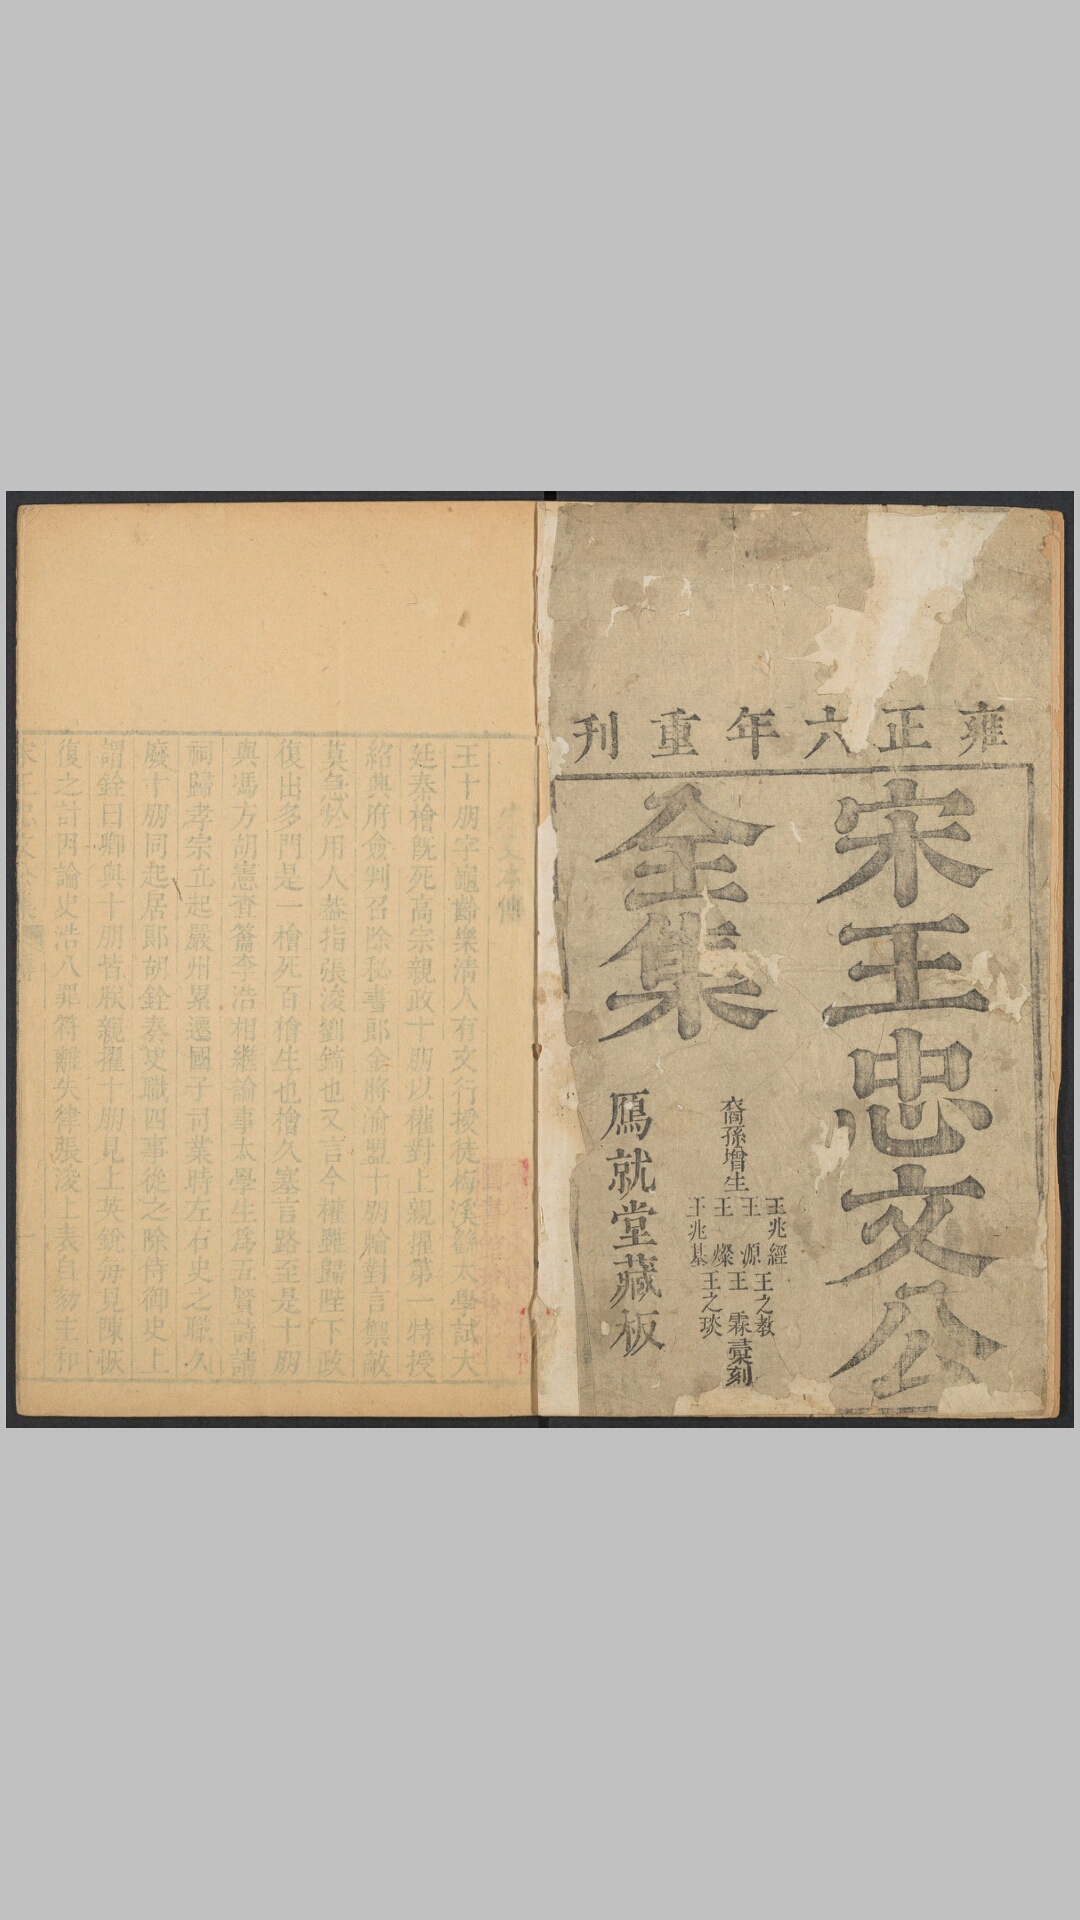 雍正六年重刊
宋王忠文公
全集
裔孫增生
王兆經
王源
王燦
王兆基
王之教
王霖
王之琰
彙刻
鴈就堂藏板
王十朋字龜齡樂清人有文行授徒梅溪
太學試大
廷奏檜既死高宗親政十朋以權對上親擢第一特授
紹興府僉判召除秘書郎金將渝盟十朋輪對言禦敵
莫急於用人蓋指張浚劉錡也又言今權雖歸陛下政
復出多門是一檜死百檜生也檜久塞言路至是十朋
與馮方胡憲查籥李浩相繼論事太學生為五賢詩
祠歸孝宗立起嚴州累遷國子司業時左右史之職久
廢十朋同起居郎胡銓奏史職四事從之除侍御史上
謂銓曰聊與十朋皆朕親擢十朋見上英銳每見陳恢
復之計因論史浩八罪符離失律張浚上表自劾主和